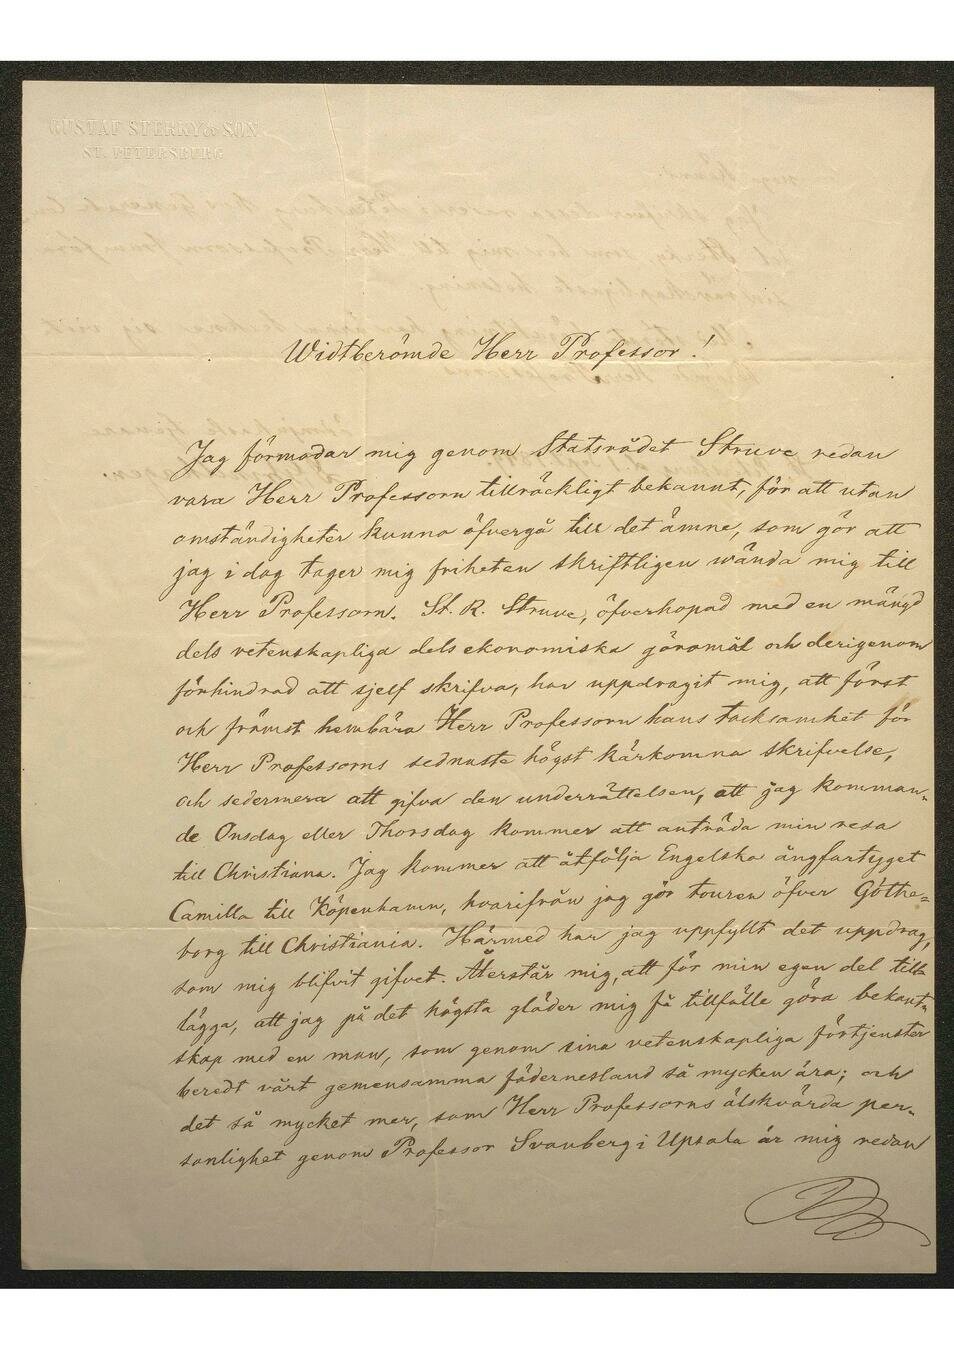 GUSTAF STERKY & SON
ST. PETERSBURG
Widtberömde Herr Professor!
Jag förmodar mig genom Statsrådet Struve redan
vara Herr Professorn tillräckligt bekannt, för att utan
omständigheter kunna öfvergå till det ämne, som gör att
jag i dag tager mig friheten skriftligen wända mig till
Herr Professorn. St. R. Struve, öfverhopad med en mängd
dels vetenskapliga dels ekonomiska göromål och derigenom
förhindrad att sjelf skrifva, har uppdragit mig, att först
och främst hembära Herr Professorn hans tacksamhet för
Herr Professorns sednaste högst kärkomna skrifvelse,
och sedermera att gifva den underrättelsen, att jag komman-
de Onsdag eller Thorsdag kommer att anträda min resa
till Christiana. Jag kommer att åtfölja Engelska ångfartyget
Camilla till Köpenhamn, hvarifrån jag gör touren öfver Göthe-
borg till Christiania. Härmed har jag uppfyllt det uppdrag,
som mig blifvit gifvet. Återstår mig, att för min egen del till-
lägga, att jag på det högsta gläder mig få tillfälle göra bekant-
skap med en man, som genom sina vetenskapliga förtjenster
beredt vårt gemensamma fädernesland så mycken ära; och
det så mycket mer, som Herr Professorns älskvärda per-
sonlighet genom Professor Svanberg i Upsala är mig redan